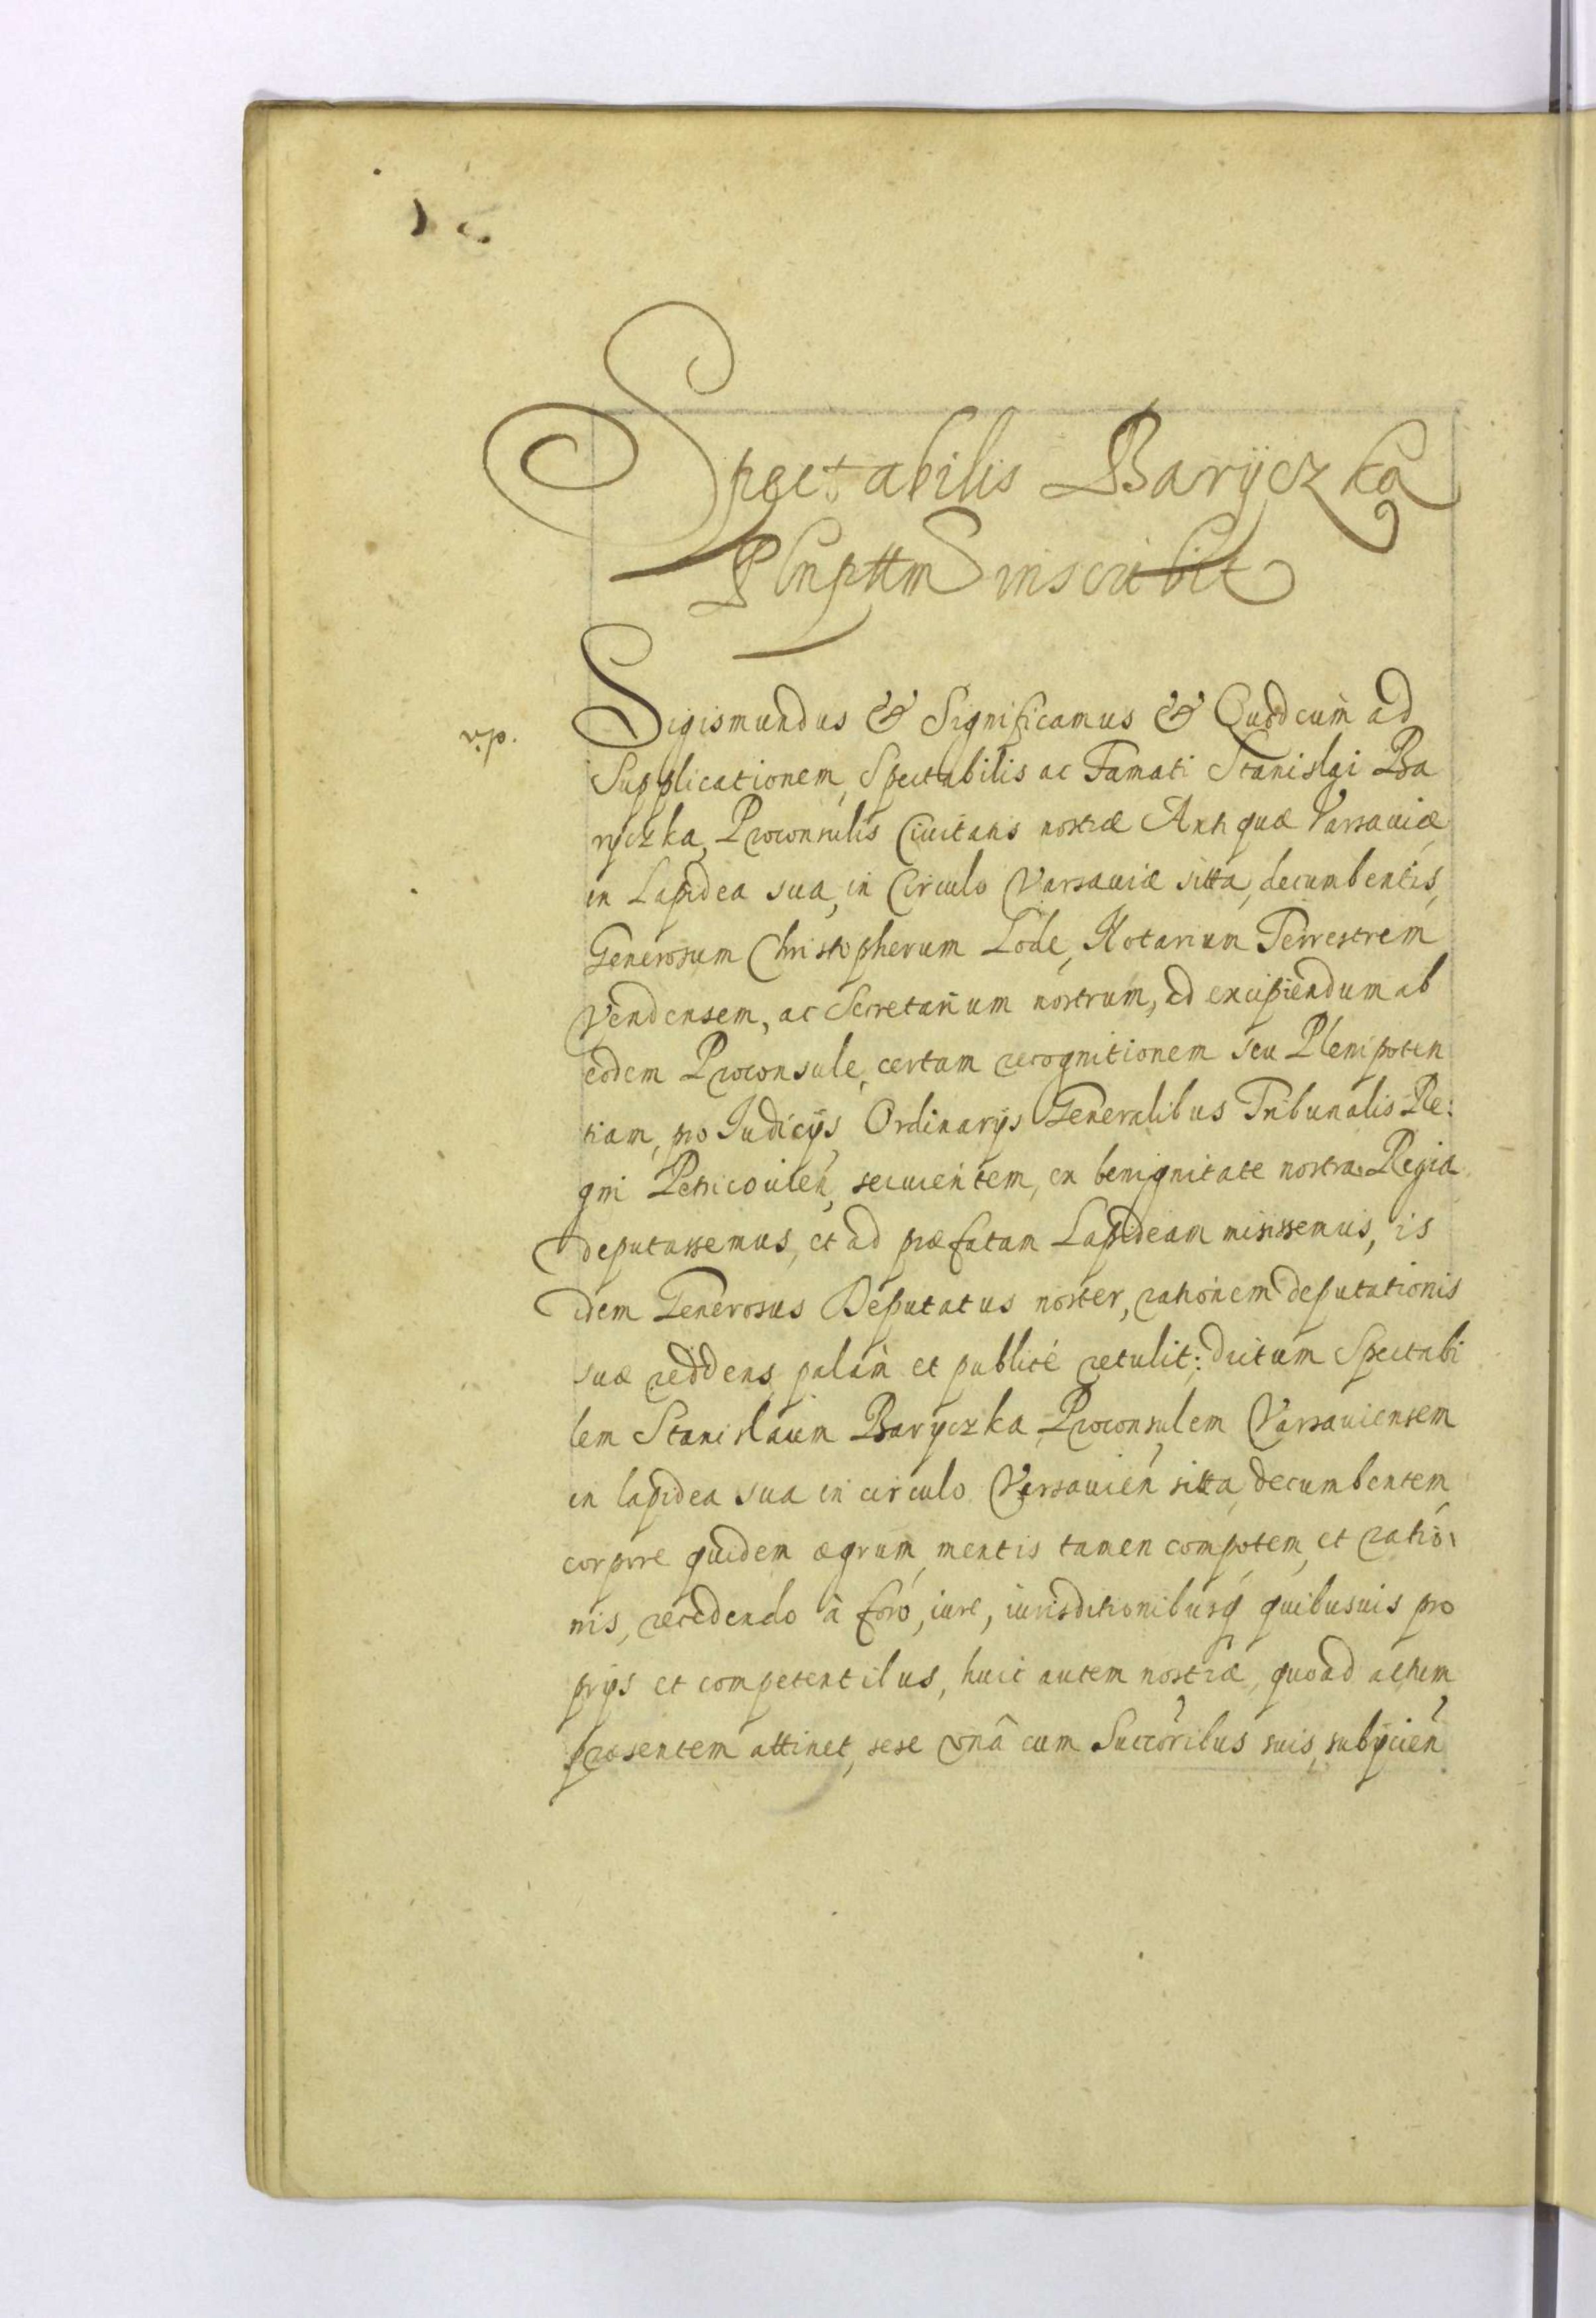 Spectabilis Baryczka
Plnpttm inscribit
Sigismundus & Significamus & Quòd cum ad
v.p.
Supplicationem, Spectabilis ac Famati Stanislai Ba
ryczka, Proconsulis Ciuitatis nostræ Antiquæ Varsauiæ
in Lapidea sua, in Circulo Varsauiæ sitta, decumbentis,
Generosum Christopherum Lode, Notarium Terrestrem
Vendensem, ac Secretarium nostrum, ad excipiendum ab
eodem Proconsule, certam recognitionem seu Plenipoten
tiam, pro Iudicijs Ordinarijs Generalibus Tribunalis Re:
gni Petricouien, seruientem, ex benignitate nostra Regia
deputassemus, et ad præfatam Lapideam misissemus, is
idem Generosus Deputatus noster, rationem deputationis
suæ reddens, palàm et publicé retulit: dictum Spectabi
lem Stanislaum Baryczka, Proconsulem Varsauiensem
in lapidea sua in circulo Varsauień sitta decumbentem,
corpore quidem ægrum, mentis tamen compotem, et ratio
nis, recedendo à foro, iure, iurisditionibusq́ quibusuis pro
prijs et competentibus, huic autem nostræ, quoad actum
præsentem attinet, sese vnâ cum Succoribus suis, subijcień